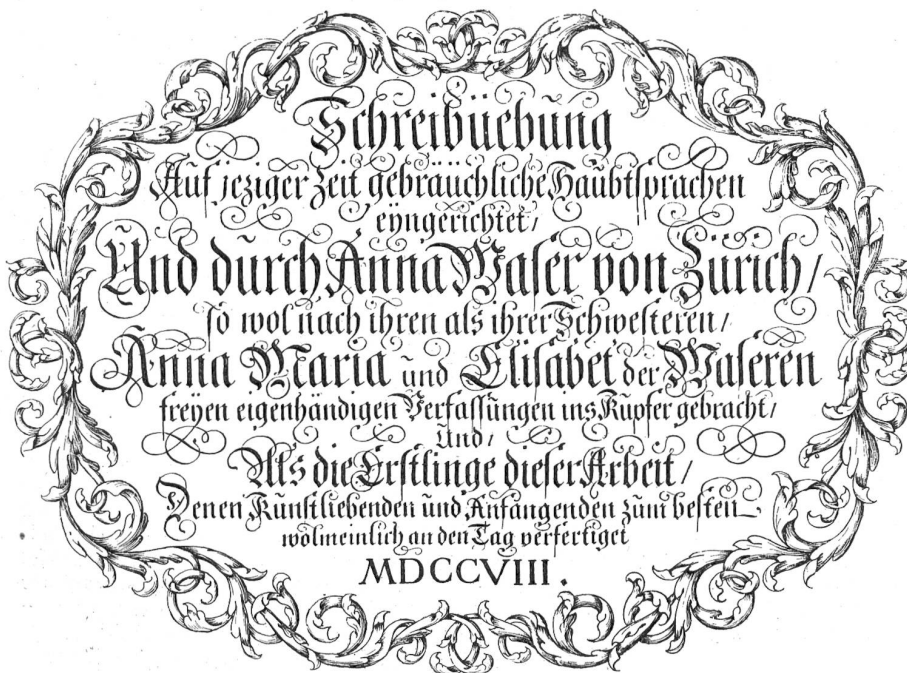 Schreibüebung
Auf jeziger Zeit gebräuchliche Haubtsprachen
eyngerichtet/
Und durch Anna Waser von Zürich/
so wol nach ihren als ihrer Schwesteren/
Anna Maria und Elisabet der Waseren
freyen eigenhändigen Verfassungen ins Kupfer gebracht/
Und/
Als die Erstlinge dieser Arbeit/
Denen Kunstliebenden und Anfangenden zum besten
wolmeinlich an den Tag verfertiget
MDCCVIII.